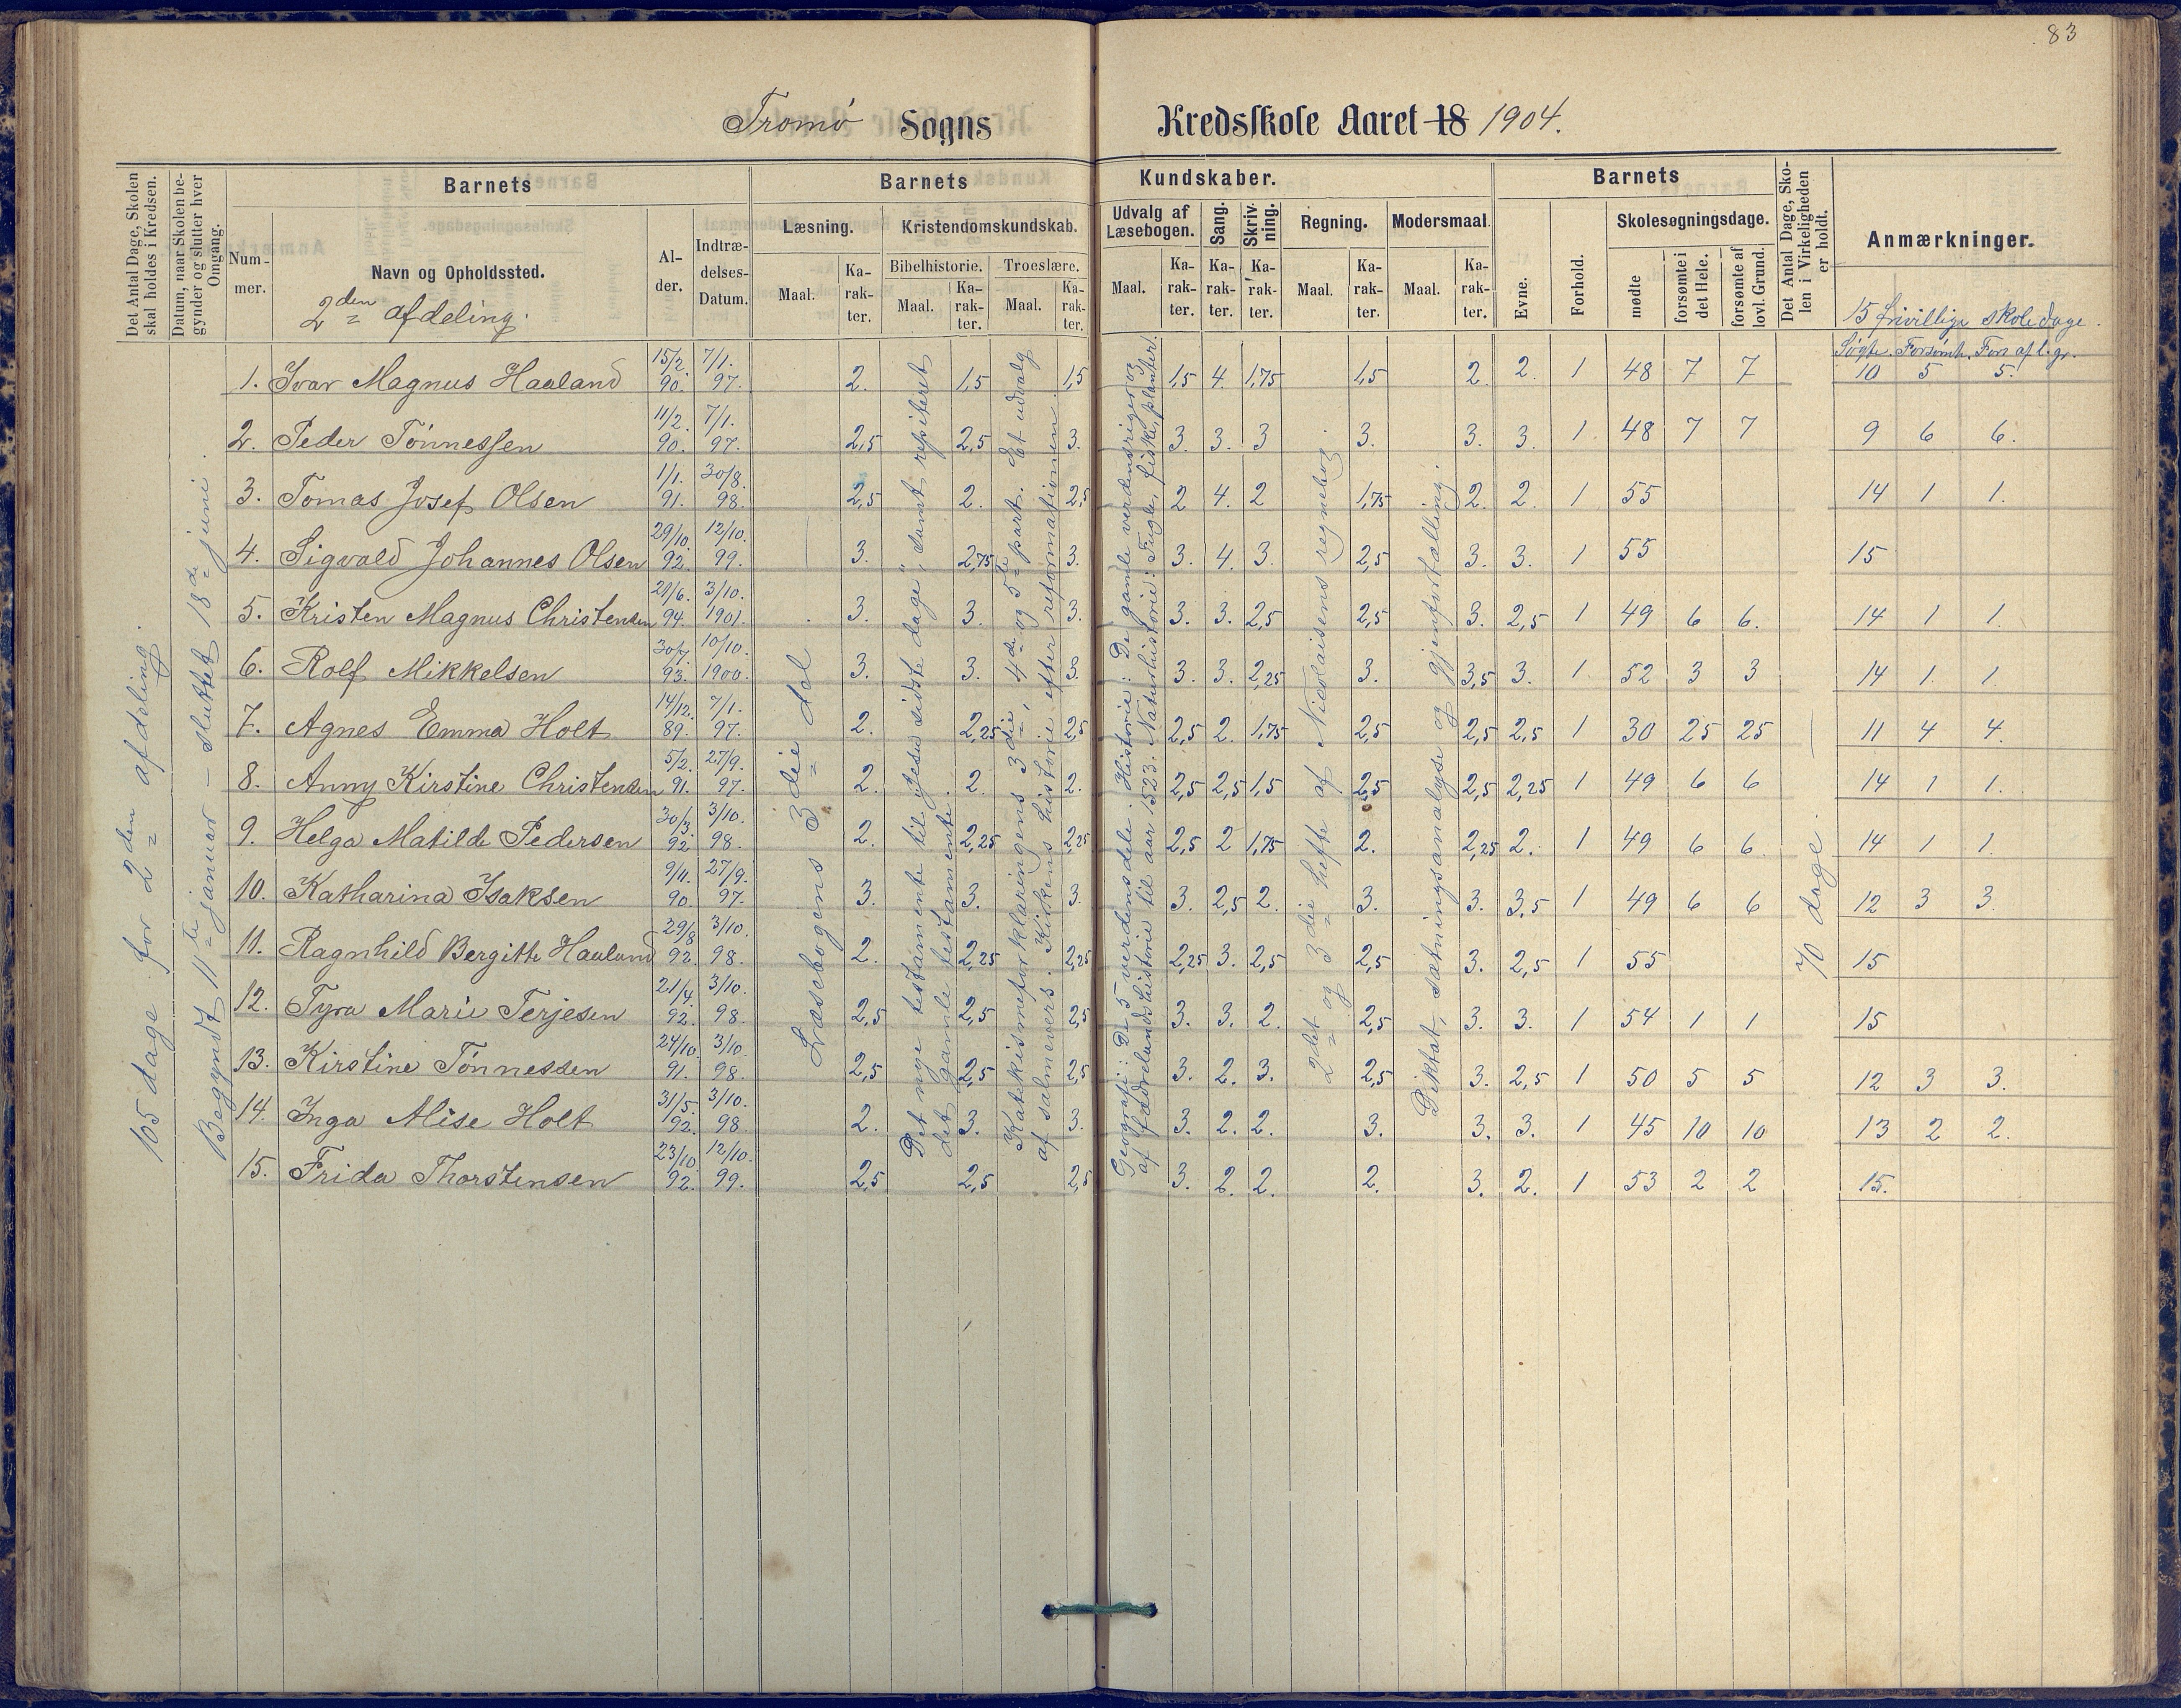 83
Tromø Sogns Kredsskole Aaret 18 1904.
Det Antal Dage, Skolen skal holdes i Kredsen.
Datum, naar Skolen begynder og slutter hver Omgang.
Barnets
Nummer.
Navn og Opholdssted.
2den afdeling.
Alder.
Indtrædelses-Datum.
Barnets Kundskaber.
Læsning.
Maal.
Karakter.
Kristendomskundskab.
Bibelhistorie.
Maal.
Karakter.
Troeslære.
Maal.
Karakter.
Udvalg af Læsebogen.
Maal.
Karakter.
Sang.
Karakter.
Skrivning.
Karakter.
Regning.
Maal.
Karakter.
Modersmaal.
Maal.
Karakter.
Barnets
Evne.
Forhold.
Skolesøgningsdage.
mødte
forsømte i det Hele.
forsømte af lovl. Grund.
Det Antal Dage, Skolen i Virkeligheden er holdt.
Anmærkninger.
15 frivillige skoledage.
Søgte. Forsømt. Fors af l. gr.
105 dage for 2den afdeling.
Begyndt 11te januar – sluttet 18de juni.
Læsebogens 3die del
Det nye testamente til "Jesu sidste dage", samt repiteret
det gamle testamente.
Katekismeforklaringens 3die, 4de og 5te part. Et udvalg
af salmevers. Kirkens historie efter reformationen.
Geografi: De 5 verdensdele. Historie: De gamle verdensriger og
af fædrelandshistorie til aar 1523. Naturhistorie: Fugle, fiske, planter.
2det og 3die hefte af Nicolaisens regnebog.
Diktat, sætningsanalyse og gjenfortælling.
70 dage.
1. Ivar Magnus Haaland 15/2 90. 7/1. 97. 2. 1,5 1,5 1,5 4. 1,75 1,5 2. 2. 1 48 7 7 10 5 5.
2. Peder Tönnessen 11/2. 90. 7/1. 97. 2,5 2,5 3. 3. 3. 3 3. 3. 3. 1 48 7 7 9 6 6.
3. Tomas Josef Olsen 1/1. 91. 30/8. 98. 2,5 2. 2,5 2 4. 2 1,75 2. 2. 1 55 14 1 1.
4. Sigvald Johannes Olsen 29/10. 92. 12/10. 99. 3. 2,75 3. 3. 4. 3. 2,5 3. 3. 1 55 15
5. Kristen Magnus Christensen 21/6. 94. 3/10. 1901. 3. 3. 3. 3. 3. 2,5 2,5 3. 2,5 1 49 6 6. 14 1 1.
6. Rolf Mikkelsen 30/7 93. 10/10. 1900. 3. 3. 3. 3. 3. 2,25 3. 3,5 3. 1 52 3 3 14 1. 1.
7. Agnes Emma Holt 14/12. 89. 7/1. 97. 2. 2,25 2,5 2,5 2. 1,75 2,5 2,5 2,5 1 30 25 25 11 4 4.
8. Anny Kirstine Christensen 5/2. 91. 27/9. 97. 2. 2. 2. 2,5 2,5 1,5 2,5 2,5 2,25 1 49 6 6 14 1 1.
9. Helga Matilde Pedersen 30/3. 92. 3/10. 98. 2. 2,25 2,25 2,5 2 1,75 2. 2,25 2. 1 49 6 6. 14 1 1.
10. Katharina Isaksen 9/11. 90. 27/9. 97. 3. 3. 3. 3. 2,5 2. 3. 3. 3,5 1 49 6 6 12 3 3.
11. Ragnhild Bergitte Haaland 29/8 92. 3/10. 98. 2. 2,25 2,25 2,25 3. 2,5 2,5 3. 2,5 1 55 15
12. Tyra Marie Terjesen 21/4. 92. 3/10. 98. 2,5 2,5 2,5 3. 3. 2. 2,5 3. 3. 1 54 1 1 15
13. Kirstine Tönnessen 24/10. 91. 3/10. 98. 2,5 2,5 2,5 3. 2. 3. 2,5 3. 2,5 1 50 5 5 12 3 3.
14. Inga Alise Holt 31/5. 92. 3/10. 98. 2. 3. 3. 3. 2. 2. 3. 3. 3. 1 45 10 10 13 2 2.
15. Frida Thorstensen 23/10. 92. 12/10. 99. 2,5 2,5 2,5 3. 2. 2. 2. 3. 2. 1 53 2 2 15.